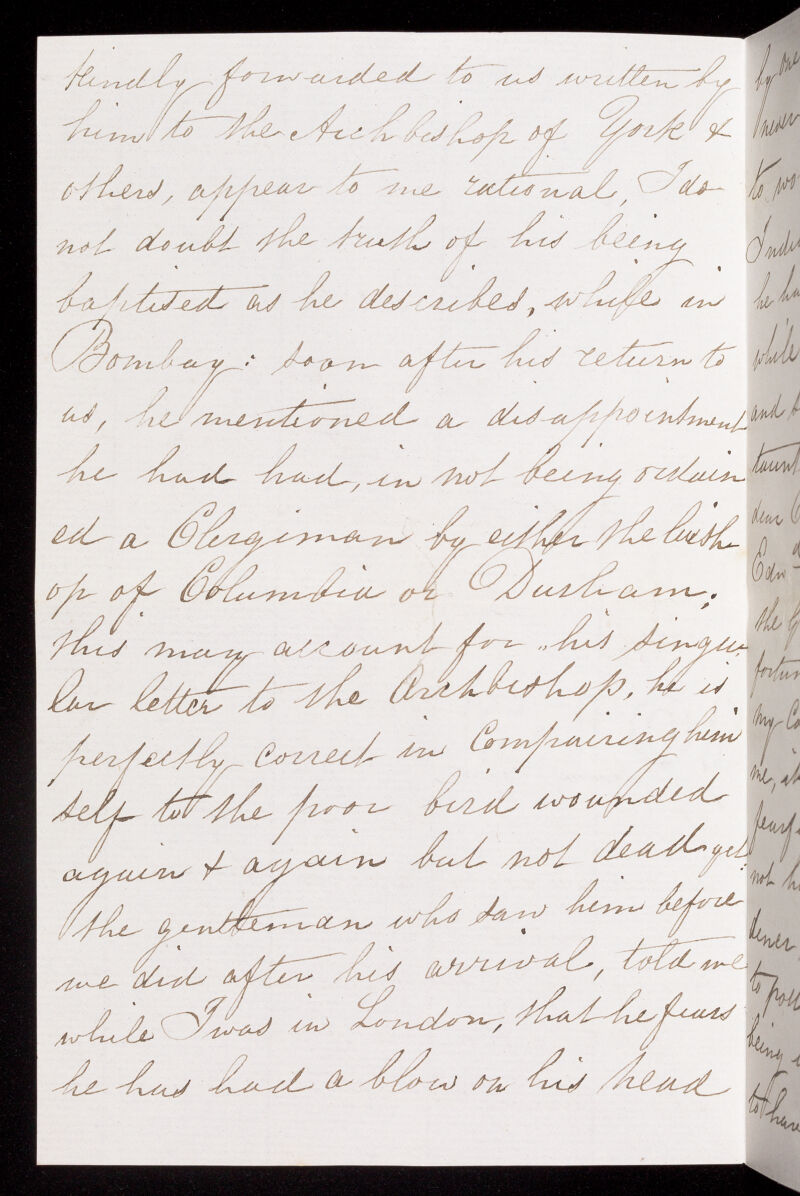 kindly forwarded to us written by
him to the Archbishop of York &
others, appear to me rational, I do
not doubt the truth of his being
baptised as he describes, while in
Bombay: soon after his return to
us, he mentioned a disappointment
he had had, in not being ordain
ed a Clergiman by either the bish
op of Columbia or Durham;
this may account for his singu-
lar letter to the Archbishop, he is
perfectly correct in compairing him
self to the poor bird wounded
again & again but not dead yet:
the gentleman who saw him before
we did after his arrival, told me
while I was in London, that he fears
he has had a blow on his head
by one
never
to wo
he ha
while
and b
taunt
dear
Edw
the
fortun
my Co
me, it
fearf
not h
to
being
to have